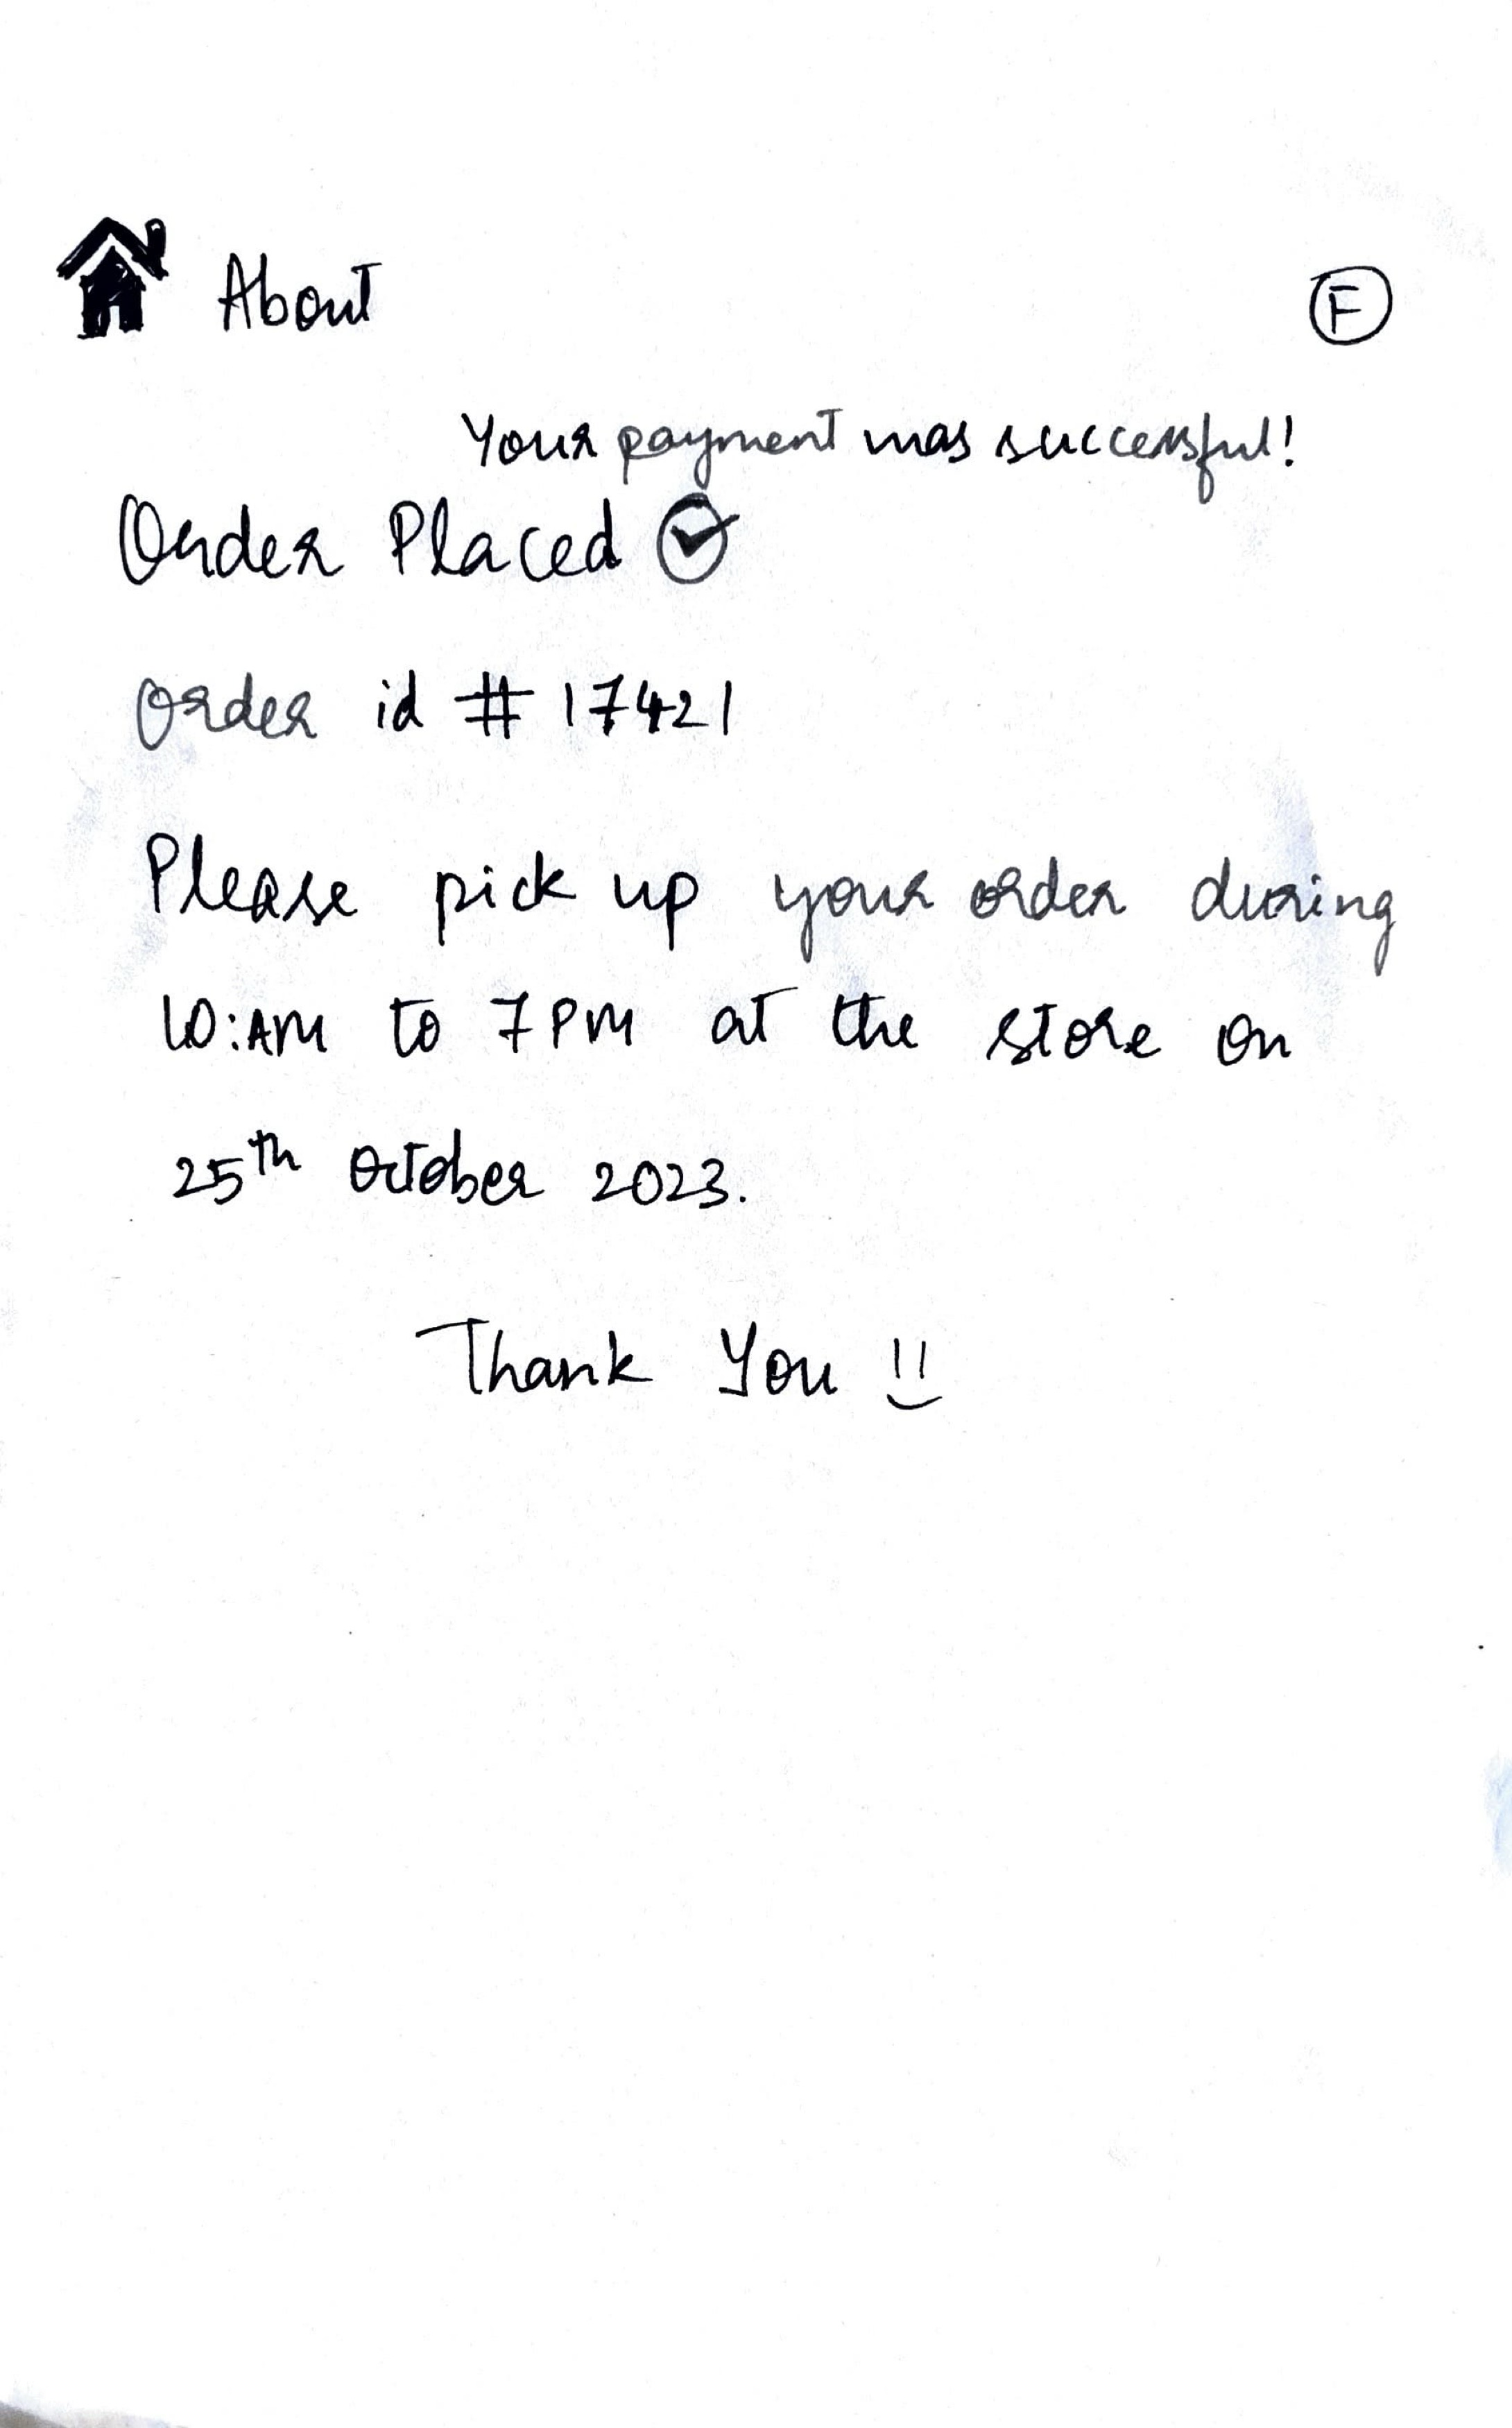 About
F
Your payment was successful!
Order Placed
Order id # 17421
Please pick up your order during
10:AM to 7PM at the store on
25th October 2023.
Thank You !!